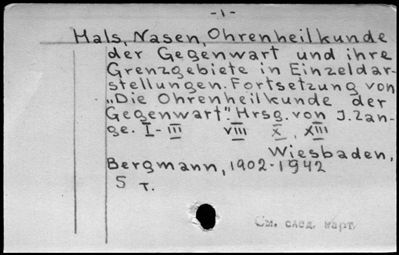 -1-
Hals, Nasen, Ohrenheilkunde
der Gegenwart und ihre
Grenzgebiete in Einzeldar-
stellungen. Fortsetzung von
„Die Ohrenheilkunde der
Gegenwart". Hrsg. von J. Zan-
ge. I-III VIII X, XIII
Wiesbaden,
Bergmann, 1902-1942
5 т.
См. след. карт.